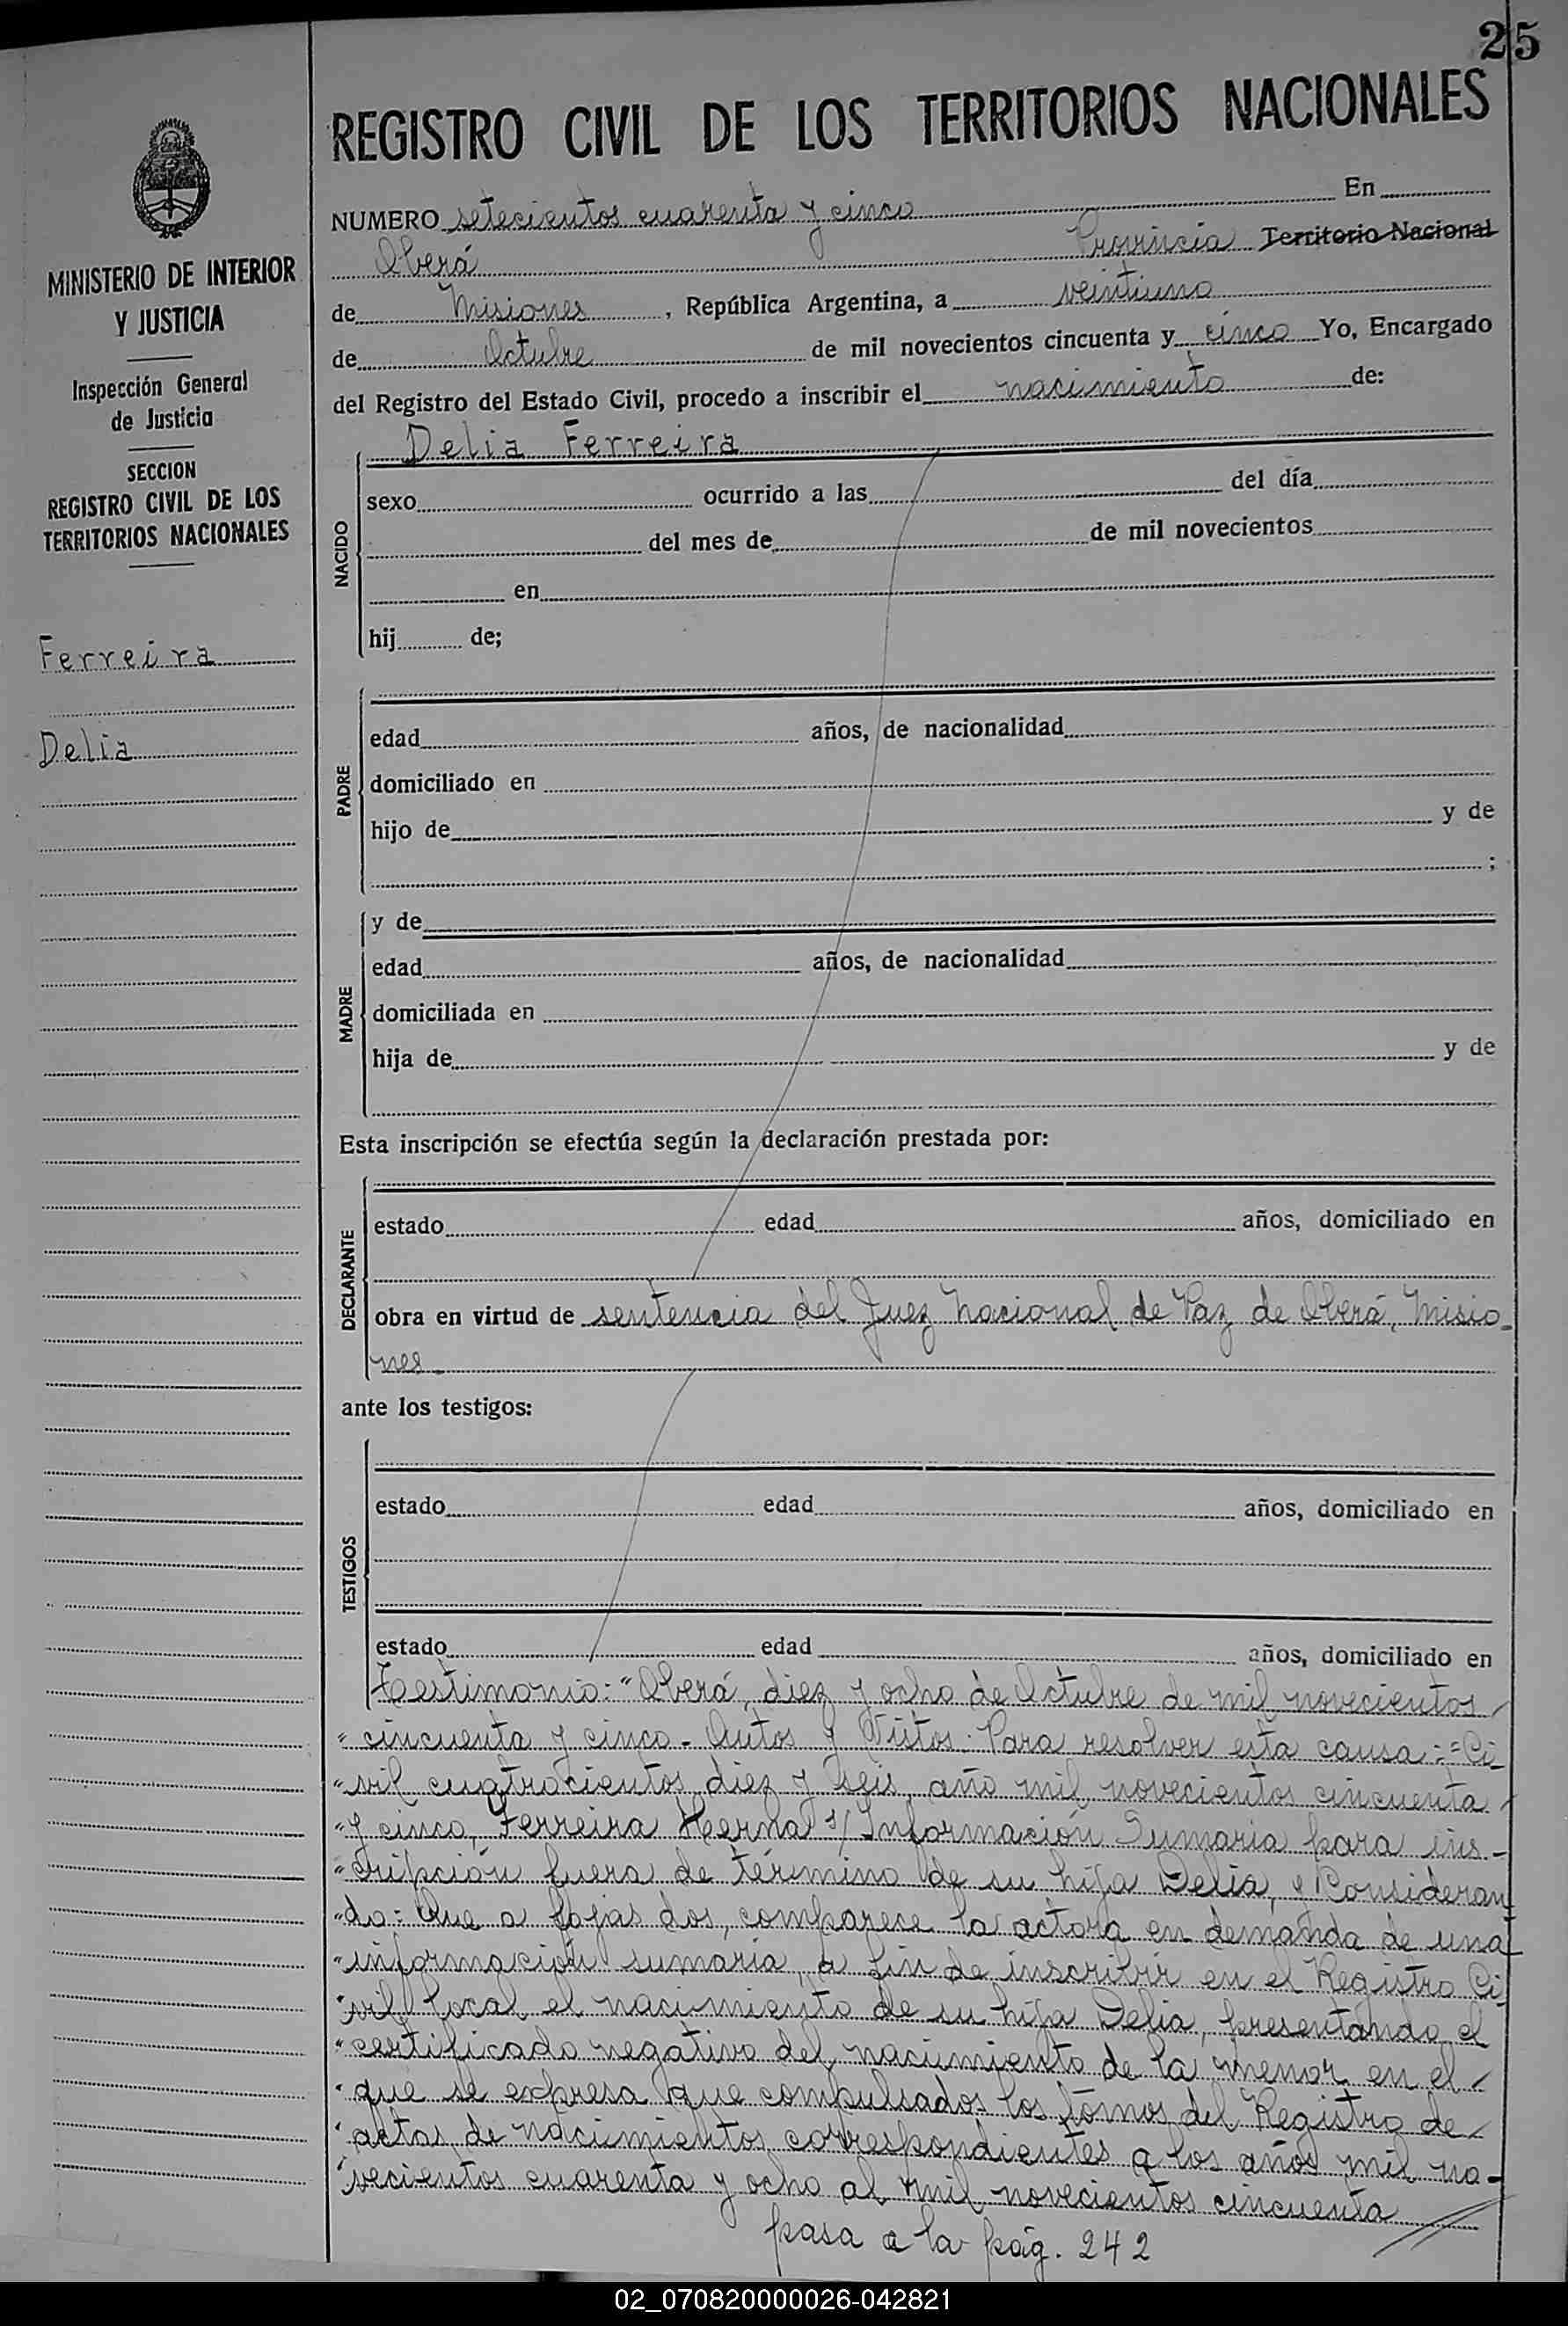 25
REGISTRO CIVIL DE LOS TERRITORIOS NACIONALES
MINISTERIO DE INTERIOR
Y JUSTICIA
Inspección General
de Justicia
SECCION
REGISTRO CIVIL DE LOS
TERRITORIOS NACIONALES
Ferreira
Delia
NUMERO setecientos cuarenta y cinco En
Oberá Provincia Territorio Nacional
de Misiones, República Argentina, a veintiuno
de Octubre de mil novecientos cincuenta y cinco Yo, Encargado
del Registro del Estado Civil, procedo a inscribir el nacimiento de:
NACIDO
Delia Ferreira
sexo ocurrido a las del día
del mes de de mil novecientos
en
hij de;
PADRE
edad años, de nacionalidad
domiciliado en
hijo de y de
;
MADRE
y de
edad años, de nacionalidad
domiciliada en
hija de y de
Esta inscripción se efectúa según la declaración prestada por:
DECLARANTE
estado edad años, domiciliado en
obra en virtud de sentencia del Juez Nacional de Paz de Oberá, Misio-
nes.
ante los testigos:
TESTIGOS
estado edad años, domiciliado en
estado edad años, domiciliado en
Testimonio: "Oberá, diez y ocho de Octubre de mil novecientos
"cincuenta y cinco.- Autos y Vistos: Para resolver esta causa:=Ci-
"vil cuatrocientos diez y seis, año mil novecientos cincuenta
"y cinco, Ferreira Herma s/ Información Sumaria para ins-
"cripción fuera de término de su hija Delia, y Consideran
"do: Que a fojas dos, comparece la actora en demanda de una
"información sumaria, a fin de inscribir en el Registro Ci
"vil local el nacimiento de su hija Delia, presentando el
"certificado negativo del nacimiento de la menor en el
"que se expresa que compulsados los tomos del Registro de
"actas de nacimientos correspondientes a los años mil no-
"vecientos cuarenta y ocho al mil novecientos cincuenta
pasa a la pág. 242
02_070820000026-042821